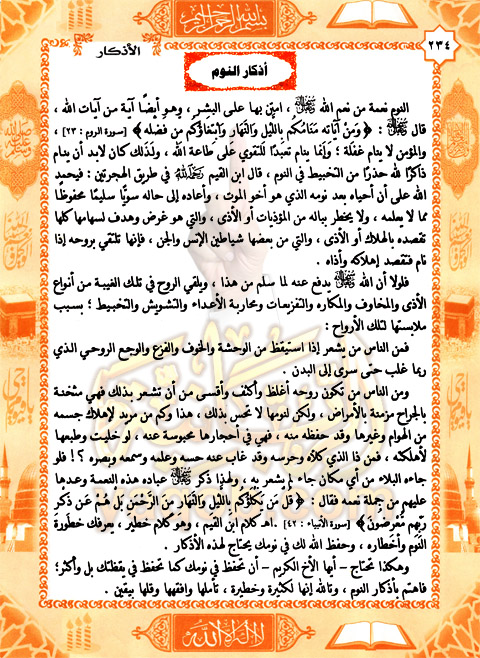 بسم الله الرحمن الرحيم
٢٣٤
الأذكار
أذكار النوم
النوم نعمة من نعم الله ﷻ ، امتن بها على البشر، وهو أيضًا آية من آيات الله ،
قال ﷻ : ﴿ وَمِنْ آيَاتِهِ مَنَامُكُم بِاللَّيْلِ وَالنَّهَارِ وَابْتِغَاؤُكُم مِن فَضْلِهِ ﴾ [سورة الروم : ٢٣] ،
والمؤمن لا ينام غفلة ؛ وإنما ينام تعبدًا للتقوي على طاعة الله ، ولذلك كان لابد أن ينام
ذاكرًا لله حذرًا من التخبيط في النوم ، قال ابن القيم رحمه الله في طريق الهجرتين : فيحمد
الله على أن أحياه بعد نومه الذي هو أخو الموت ، وأعاده إلى حاله سويًّا سليمًا محفوظًا
مما لا يعلمه ، ولا يخطر بباله من المؤذيات أو الأذى ، والتي هو غرض وهدف لسهامها كلها
تقصده بالهلاك أو الأذى ، والتي من بعضها شياطين الإنس والجن ، فإنها تلتقي بروحه إذا
نام فتقصد إهلاكه وأذاه .
فلولا أن الله ﷻ يدفع عنه لما سلم من هذا ، ويلقي الروح في تلك الغيبة من أنواع
الأذى والمخاوف والمكاره والتفزيعات ومحاربة الأعداء والتشويش والتخبيط ؛ بسبب
ملابستها لتلك الأرواح :
فمن الناس من يشعر إذا استيقظ من الوحشة والخوف والفزع والوجع الروحي الذي
ربما غلب حتى سرى إلى البدن .
ومن الناس من تكون روحه أغلظ وأكثف وأقسى من أن تشعر بذلك فهي مثخنة
بالجراح مزمنة بالأمراض ، ولكن لنومها لا تحس بذلك ، هذا وكم من مريد لإهلاك جسمه
من الهوام وغيرها وقد حفظه منه ، فهي في أحجارها محبوسة عنه ، لو خليت وطبعها
لأهلكته ، فمن ذا الذي كلأه وحرسه وقد غاب عنه حسه وعلمه وسمعه وبصره ؟! فلو
جاءه البلاء من أي مكان جاء لم يشعر به ، ولهذا ذكر ﷻ عباده هذه النعمة وعدها
عليهم من جملة نعمه فقال : ﴿ قُلْ مَن يَكْلَؤُكُم بِاللَّيْلِ وَالنَّهَارِ مِنَ الرَّحْمَنِ بَلْ هُمْ عَن ذِكْرِ
رَبِّهِم مُّعْرِضُونَ ﴾ [سورة الأنبياء : ٤٢] .اهـ كلام ابن القيم ، وهو كلام خطير ، يعرفك خطورة
النوم وأخطاره ، وحفظ الله لك في نومك يحتاج لهذه الأذكار .
وهكذا تحتاج – أيها الأخ الكريم – أن تحفظ في نومك كما تحفظ في يقظتك بل وأكثر؛
فاهتم بأذكار النوم ، وتالله إنها لكثيرة وخطيرة ، تأملها وافقهها وقلها بيقين .
لا إله إلا الله